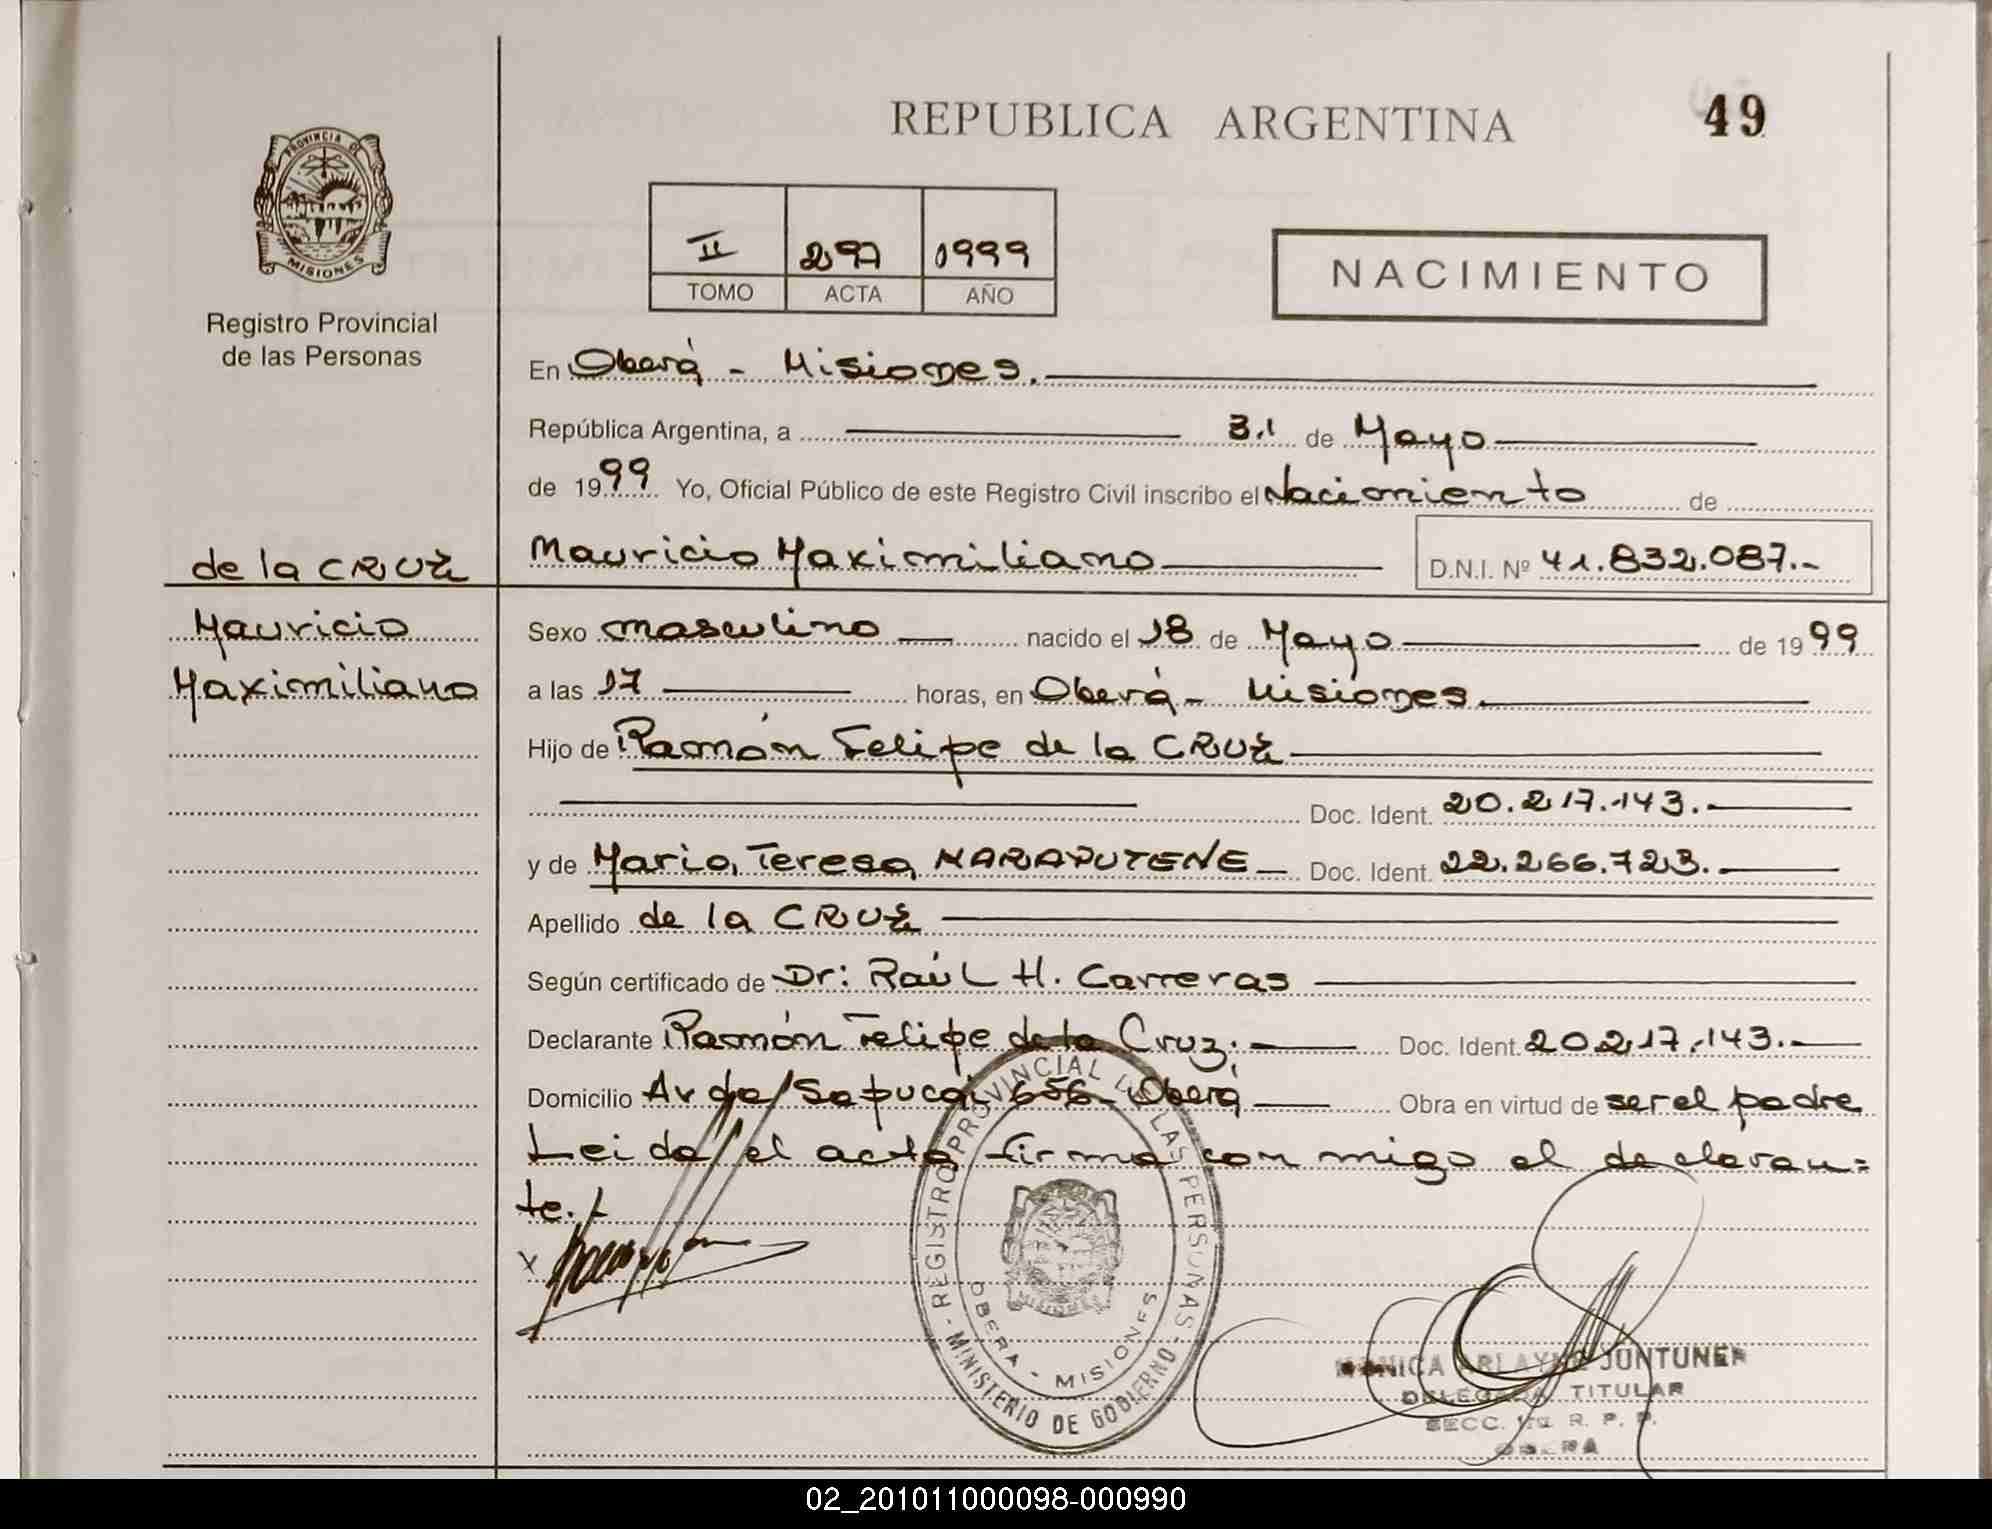 REPUBLICA ARGENTINA
49
PROVINCIA DE
MISIONES
Registro Provincial
de las Personas
II 297 1999
TOMO ACTA AÑO
NACIMIENTO
En Oberá - Misiones.
República Argentina, a 31 de Mayo
de 1999 Yo, Oficial Público de este Registro Civil inscribo el Nacimiento de
de la CRUZ
Mauricio
Maximiliano
Mauricio Maximiliano D.N.I. Nº 41.832.087.-
Sexo masculino nacido el 18 de Mayo de 1999
a las 17 horas, en Oberá - Misiones
Hijo de Ramón Felipe de la CRUZ
Doc. Ident. 20.217.143.
y de María Teresa Doc. Ident. 22.266.723.
Apellido de la CRUZ
Según certificado de Dr: Raúl H. Carreras
Declarante Ramón Felipe de la Cruz. Doc. Ident. 20.217.143.
Domicilio Avda Sapucai 656 - Oberá Obra en virtud de ser el padre
Leida el acta firma con migo el declaran=
te.
x
REGISTRO PROVINCIAL DE LAS PERSONAS - MINISTERIO DE GOBIERNO -
OBERA - MISIONES
MISIONES
MONICA JUNTUNEN
DELEGADA TITULAR
SECC. 1ra R. P. P.
OBERA
02_201011000098-000990